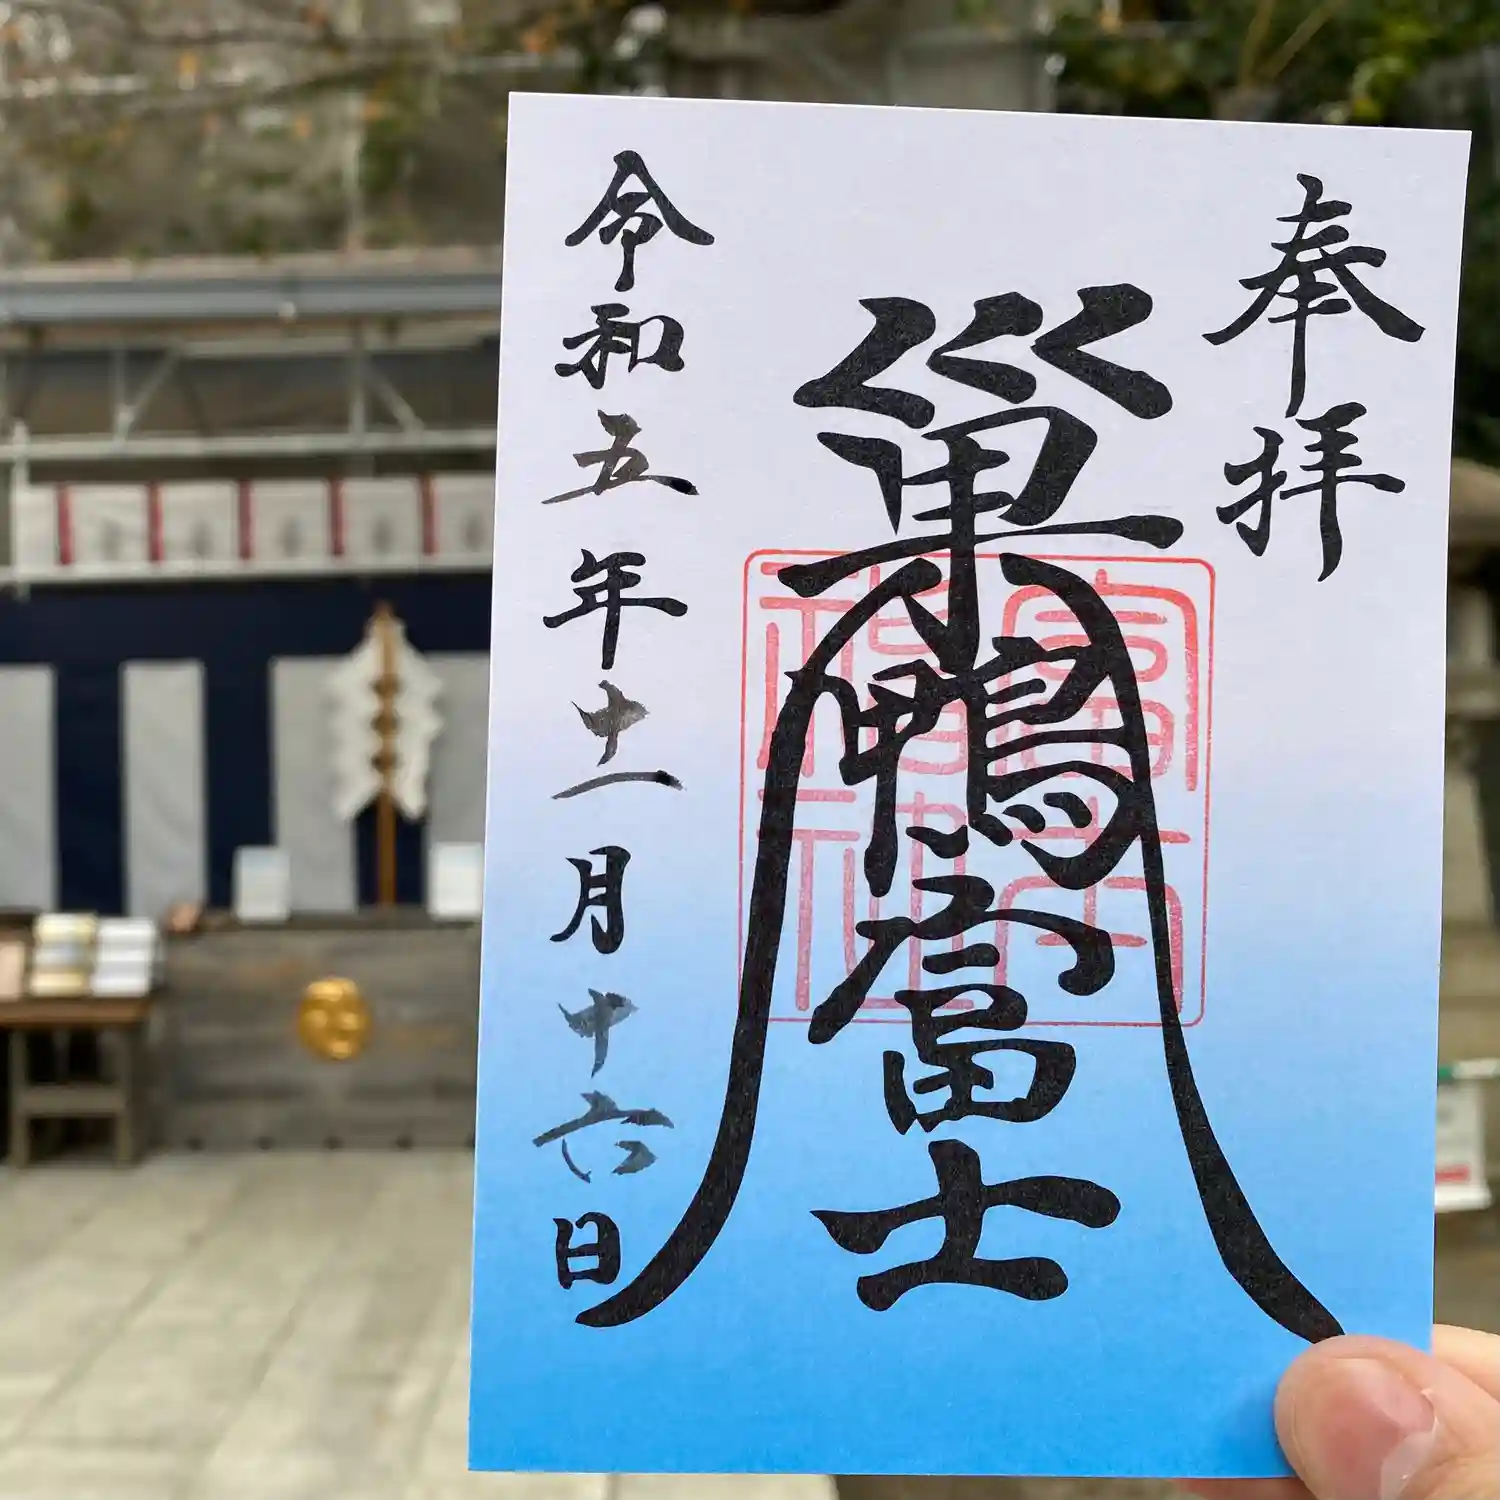 奉拝
巣鴨富士
富士浅間神社
令和五年十二月十六日